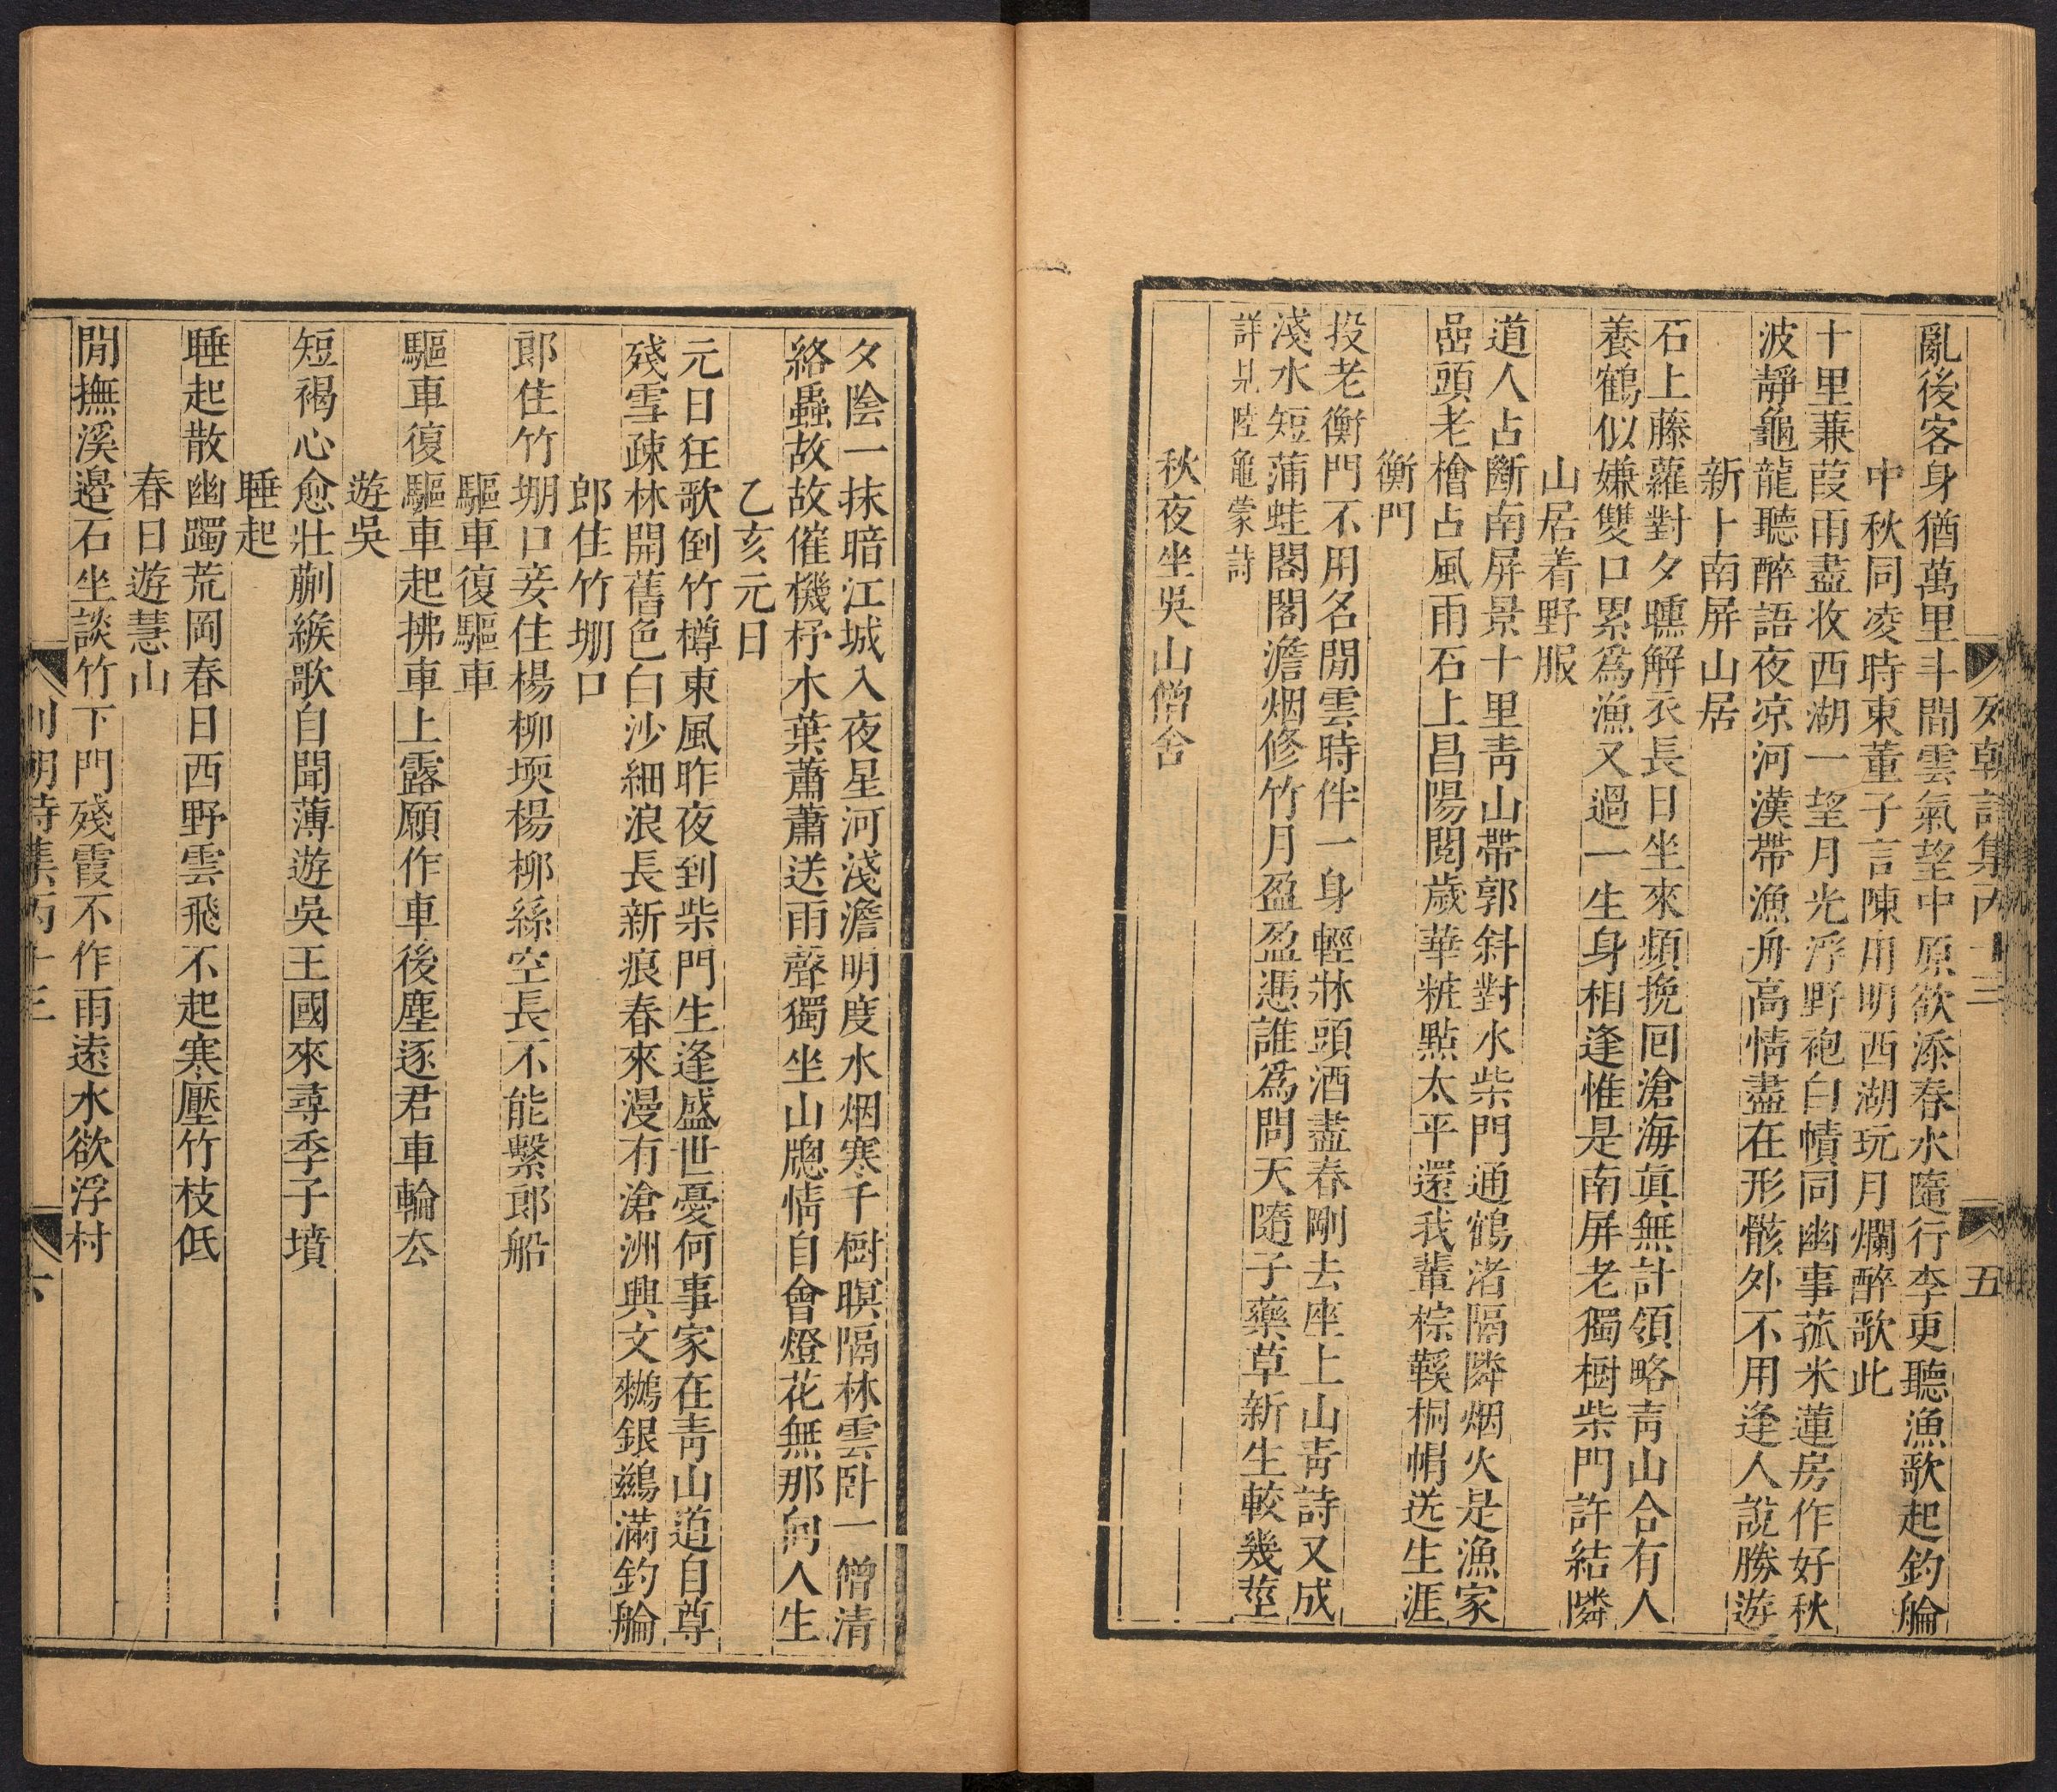 列朝詩集丙十三
五
亂後客身猶萬里斗間雲氣望中原欲添春水隨行李更聽漁歌起釣綸
中秋同凌時東董子言陳用明西湖玩月爛醉歌此
十里蒹葭雨盡收西湖一望月光浮野袍白幘同幽事菰米蓮房作好秋
波靜龜龍聽醉語夜凉河漢帶漁舟高情盡在形骸外不用逢人說勝遊
新卜南屏山居
石上藤蘿對夕曛解衣長日坐來頻挽回滄海眞無計領略靑山合有人
養鶴似嫌雙口累爲漁又過一生身相逢惟是南屏老獨樹柴門許結隣
山居着野服
道人占斷南屏景十里靑山帶郭斜對水柴門通鶴渚隔隣烟火是漁家
嵒頭老檜占風雨石上昌陽閱歲華粧點太平還我輩棕鞵桐帽送生涯
衡門
投老衡門不用名閒雲時伴一身輕牀頭酒盡春剛去座上山靑詩又成
淺水短蒲蛙閣閣澹烟修竹月盈盈憑誰爲問天隨子藥草新生較幾莖
詳見陸龜蒙詩
秋夜坐吳山僧舍
夕陰一抹暗江城入夜星河淺澹明度水烟寒千樹暝隔林雲臥一僧清
絡蟲故故催機杼木葉蕭蕭送雨聲獨坐山牕情自會燈花無那向人生
乙亥元日
元日狂歌倒竹樽東風昨夜到柴門生逢盛世憂何事家在靑山道自尊
殘雪疎林開舊色白沙細浪長新痕春來漫有滄洲興文鷀銀鷀滿釣綸
郎住竹堋口
郎住竹堋口妾住楊柳堧楊柳絲空長不能繫郎船
驅車復驅車
驅車復驅車起拂車上露願作車後塵逐君車輪去
遊吳
短褐心愈壯蒯緱歌自聞薄遊吳王國來尋季子墳
睡起
睡起散幽躅荒岡春日西野雲飛不起寒壓竹枝低
春日遊慧山
閒撫溪邊石坐談竹下門殘霞不作雨遠水欲浮村
列朝詩集丙十三
六